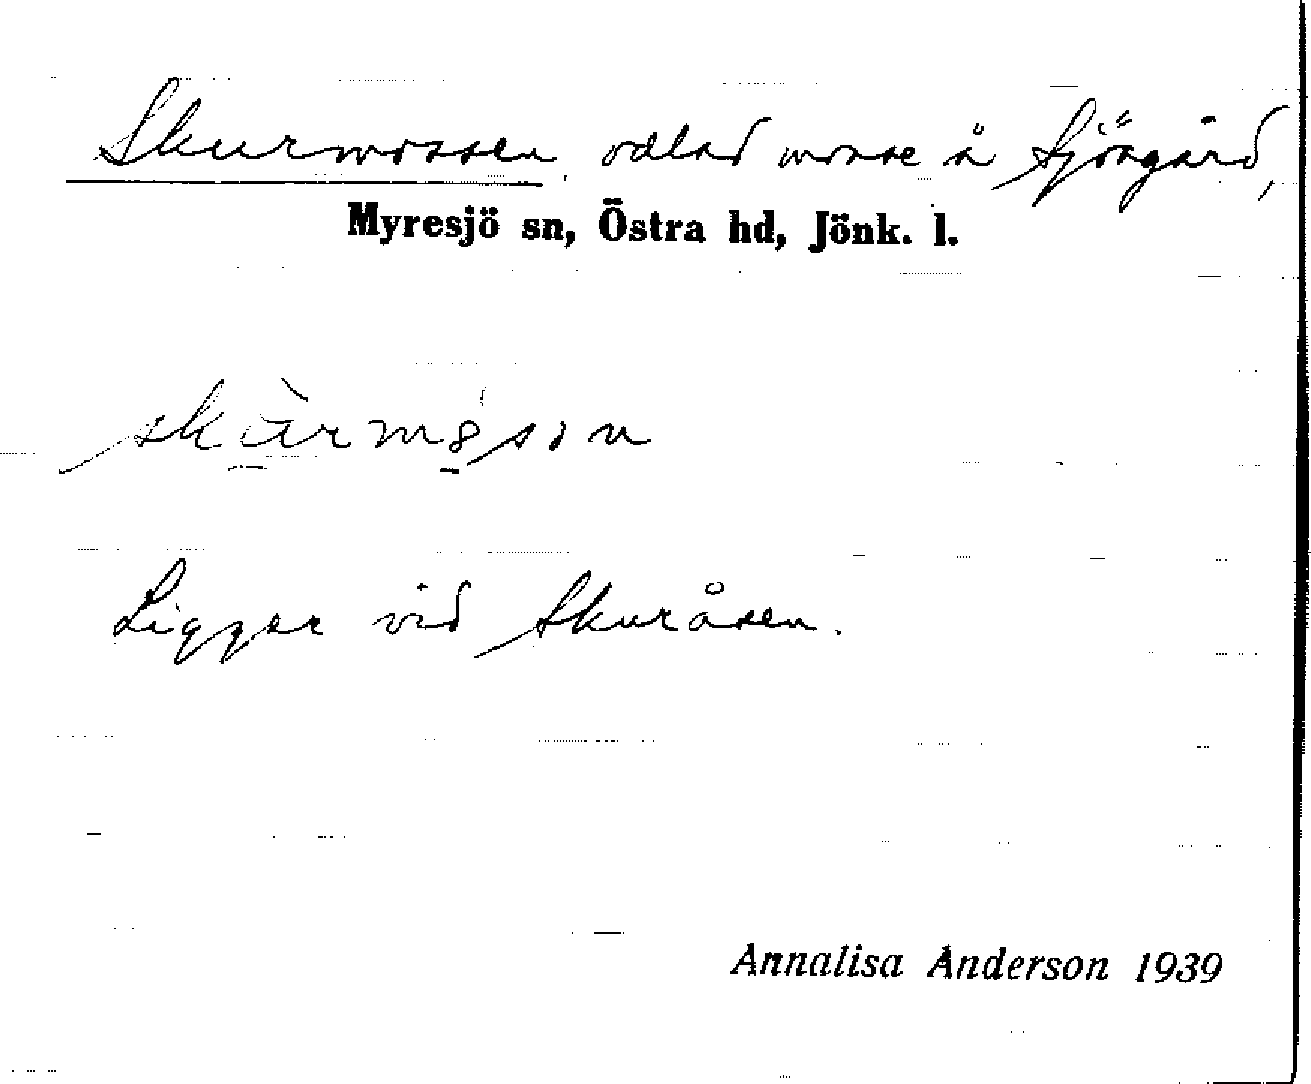 Skurmossen, odlad mosse å Sjögård,
Myresjö sn, Östra hd, Jönk. l.
Ligger vid Skuråsen.
Annalisa Anderson 1939